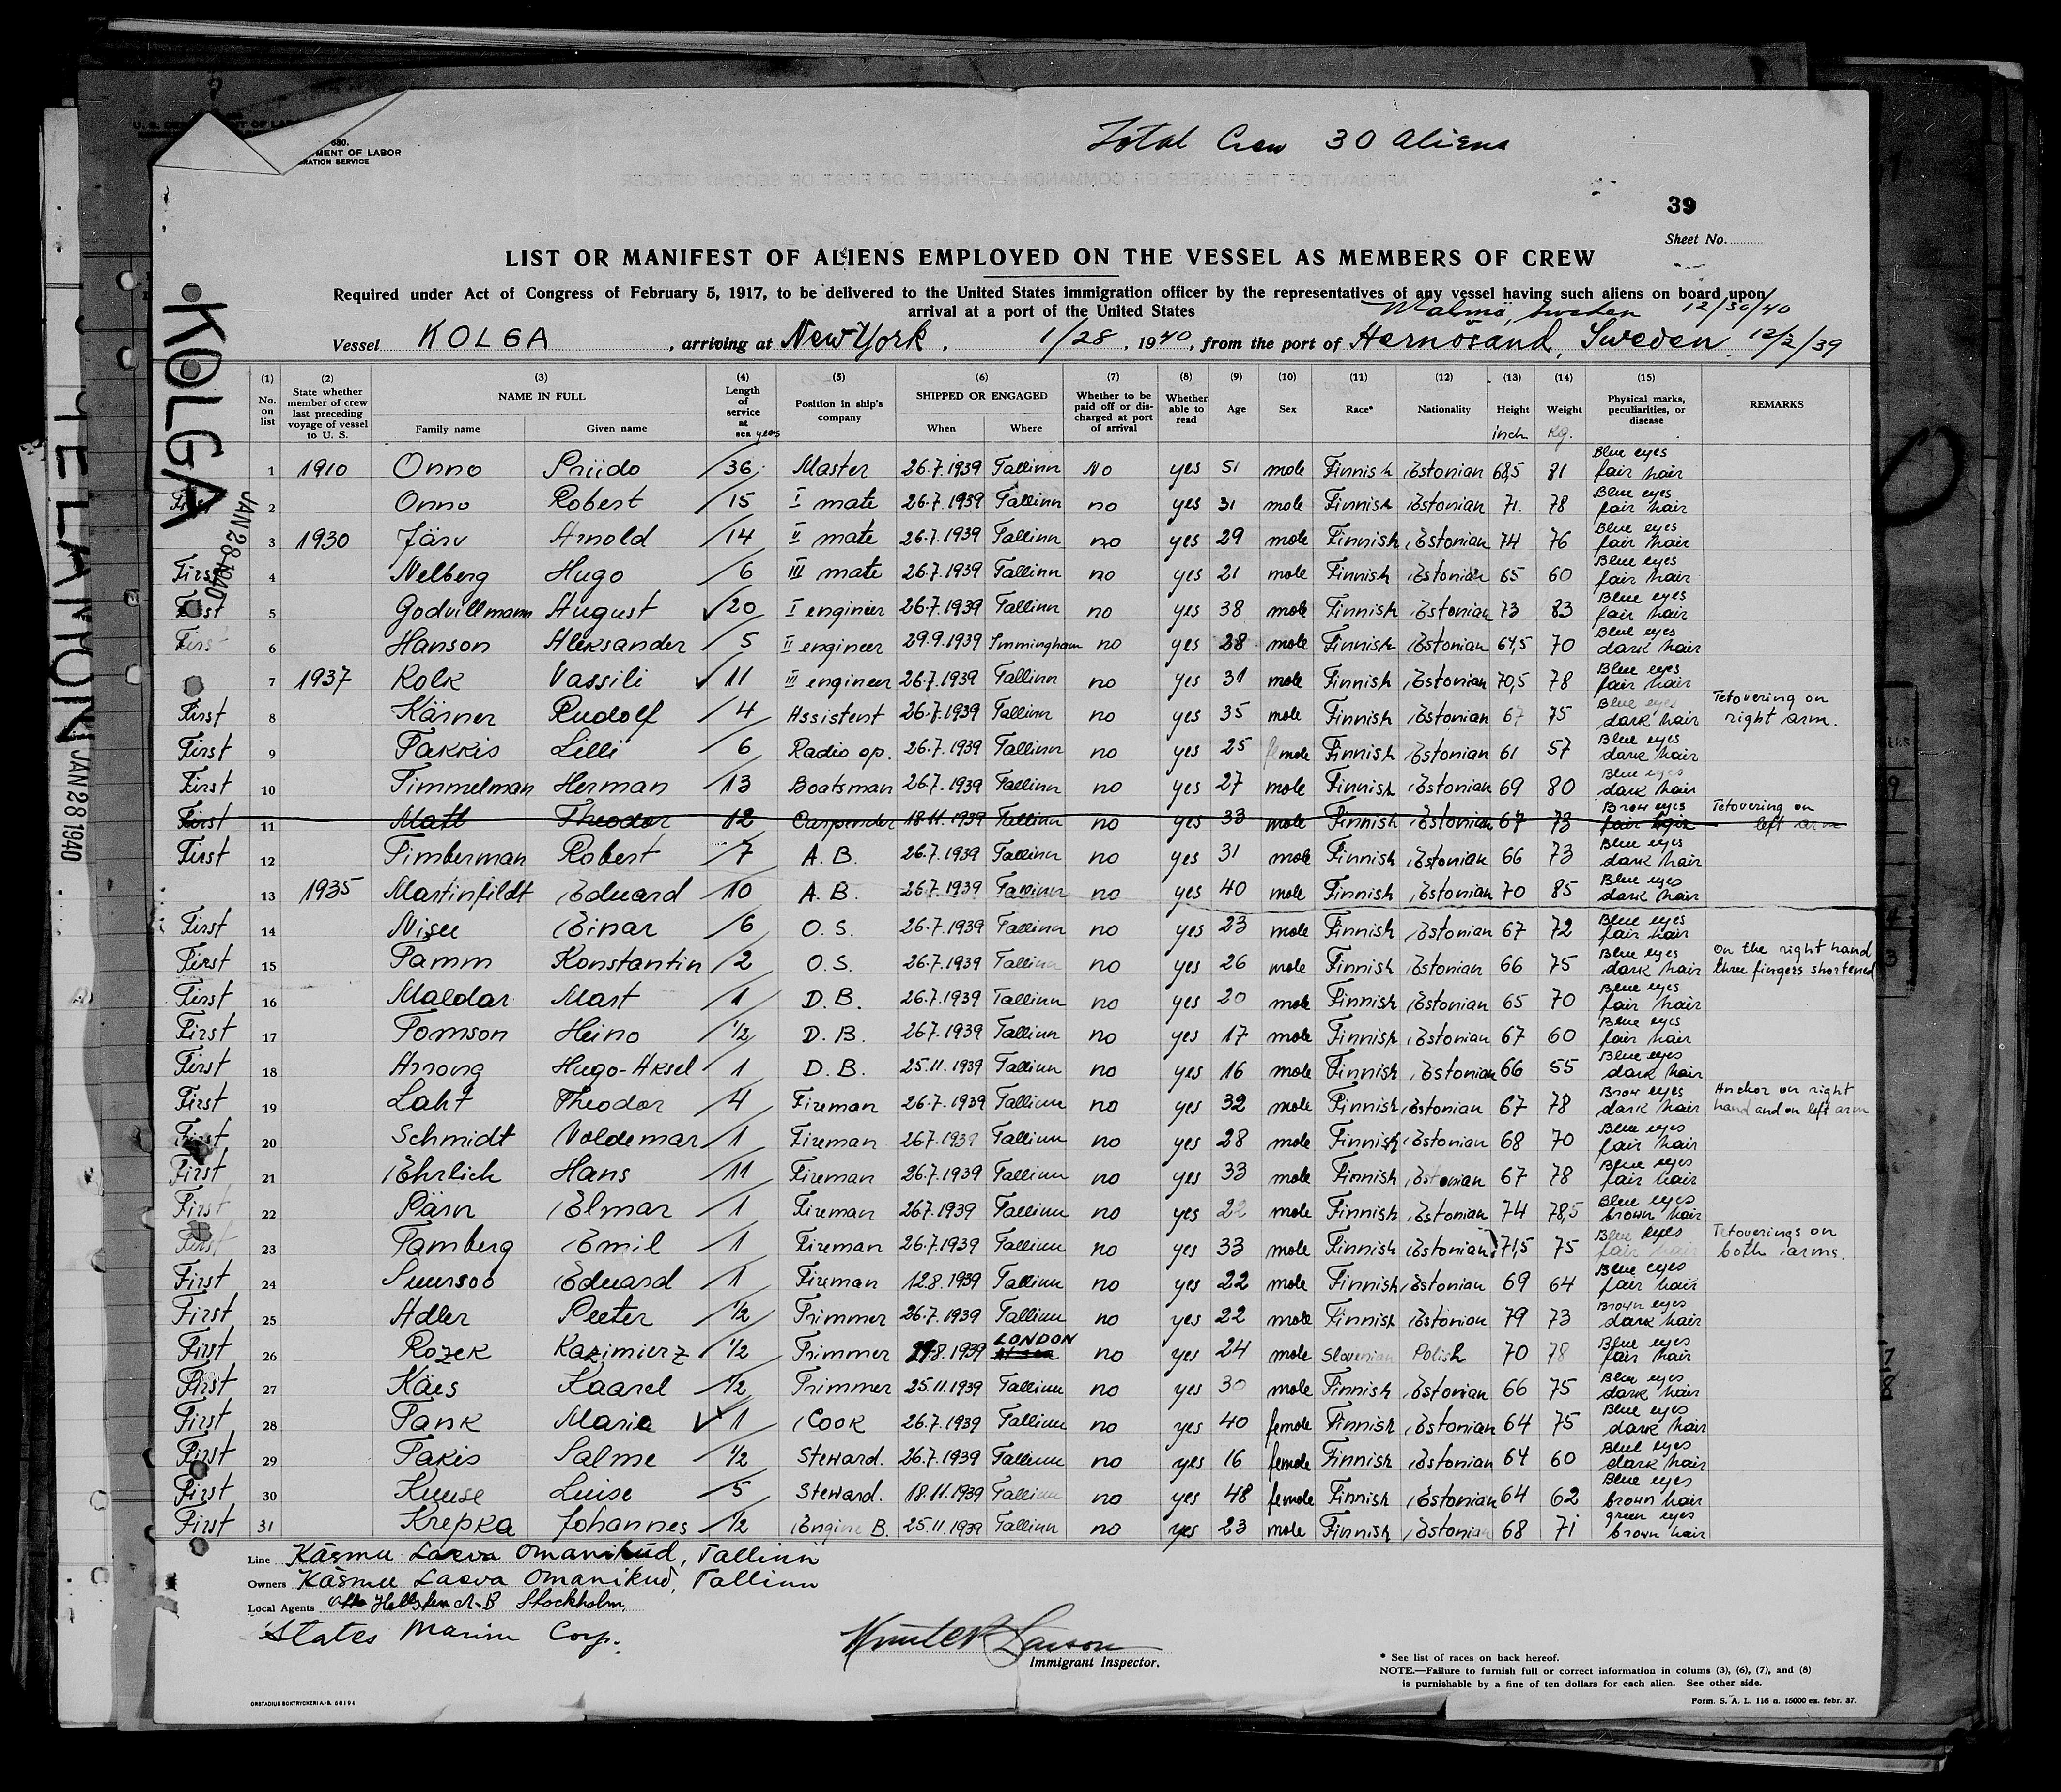 Total Crew 30 Aliens
680.
MENT OF LABOR
RATION SERVICE
39
Sheet No.
LIST OR MANIFEST OF ALIENS EMPLOYED ON THE VESSEL AS MEMBERS OF CREW
Required under Act of Congress of February 5, 1917, to be delivered to the United States immigration officer by the representatives of any vessel having such aliens on board upon
arrival at a port of the United States
Malmö, Sweden 12/30/40
Vessel KOLGA, arriving at New York. 1/28, 1940, from the port of Hernösand, Sweden. 12/2/39
KOLGA
JAN 28 1940
MELANTON
JAN 28 1940
(1) No. on list
(2) State whether member of crew last preceding voyage of vessel to U. S.
(3) NAME IN FULL Family name Given name
(4) Length of service at sea years
(5) Position in ship's company
(6) SHIPPED OR ENGAGED When Where
(7) Whether to be paid off or discharged at port of arrival
(8) Whether able to read
(9) Age
(10) Sex
(11) Race*
(12) Nationality
(13) Height inch
(14) Weight kg.
(15) Physical marks, peculiarities, or disease
REMARKS
1 1910 Onno Priido 36 Master 26.7.1939 Tallinn No yes 51 male Finnish Estonian 68,5 81 Blue eyes fair hair
First 2 Onno Robert 15 I mate 26.7.1939 Tallinn no yes 31 male Finnish Estonian 71. 78 Blue eyes fair hair
3 1930 Järv Arnold 14 II mate 26.7.1939 Tallinn no yes 29 male Finnish Estonian 74 76 Blue eyes fair hair
First 4 Nelberg Hugo 6 III mate 26.7.1939 Tallinn no yes 21 male Finnish Estonian 65 60 Blue eyes fair hair
First 5 Godvillmann August 20 I engineer 26.7.1939 Tallinn no yes 38 male Finnish Estonian 73 83 Blue eyes fair hair
First 6 Hanson Aleksander 5 II engineer 29.9.1939 Immingham no yes 28 male Finnish Estonian 64,5 70 Blue eyes dark hair
7 1937 Kolk Vassili 11 III engineer 26.7.1939 Tallinn no yes 31 male Finnish Estonian 70,5 78 Blue eyes fair hair
First 8 Kärner Rudolf 4 Assistent 26.7.1939 Tallinn no yes 35 male Finnish Estonian 67 75 Blue eyes dark hair Tetovering on right arm.
First 9 Takkis Lilli 6 Radio op. 26.7.1939 Tallinn no yes 25 female Finnish Estonian 61 57 Blue eyes dark hair
First 10 Timmelman Herman 13 Boatsman 26.7.1939 Tallinn no yes 27 male Finnish Estonian 69 80 Blue eyes dark hair
First 11 Matt Theodor 12 Carpender 18.11.1939 Tallinn no yes 33 male Finnish Estonian 67 73 Brow eyes fair hair Tetovering on left arm
First 12 Pimberman Robert 7 A. B. 26.7.1939 Tallinn no yes 31 male Finnish Estonian 66 73 Blue eyes dark hair
13 1935 Martinfildt Eduard 10 A. B. 26.7.1939 Tallinn no yes 40 male Finnish Estonian 70 85 Blue eyes dark hair
First 14 Nisu Einar 6 O. S. 26.7.1939 Tallinn no yes 23 male Finnish Estonian 67 72 Blue eyes fair hair
First 15 Tamm Konstantin 2 O. S. 26.7.1939 Tallinn no yes 26 male Finnish Estonian 66 75 Blue eyes dark hair On the right hand three fingers shortened
First 16 Maldar Mart 1 D. B. 26.7.1939 Tallinn no yes 20 male Finnish Estonian 65 70 Blue eyes fair hair
First 17 Tomson Heino 1/2 D. B. 26.7.1939 Tallinn no yes 17 male Finnish Estonian 67 60 Blue eyes fair hair
First 18 Hugo-Aksel 1 D. B. 25.11.1939 Tallinn no yes 16 male Finnish Estonian 66 55 Blue eyes dark hair
First 19 Laht Theodor 4 Fireman 26.7.1939 Tallinn no yes 32 male Finnish Estonian 67 78 Brow eyes dark hair Anchor on right hand and on left arm
First 20 Schmidt Voldemar 1 Fireman 26.7.1939 Tallinn no yes 28 male Finnish Estonian 68 70 Blue eyes fair hair
First 21 Ehrlich Hans 11 Fireman 26.7.1939 Tallinn no yes 33 male Finnish Estonian 67 78 Blue eyes fair hair
First 22 Pärn Elmar 1 Fireman 26.7.1939 Tallinn no yes 22 male Finnish Estonian 74 78,5 Blue eyes brown hair
First 23 Tamberg Emil 1 Fireman 26.7.1939 Tallinn no yes 33 male Finnish Estonian 71,5 75 Blue eyes fair hair Tetoverings on both arms.
First 24 Suursoo Eduard 1 Fireman 12.8.1939 Tallinn no yes 22 male Finnish Estonian 69 64 Blue eyes fair hair
First 25 Adler Peeter 1/2 Trimmer 26.7.1939 Tallinn no yes 22 male Finnish Estonian 79 73 Brown eyes dark hair
First 26 Rozek Kazimierz 1/2 Trimmer 29.8.1939 LONDON no yes 24 male Slovenian Polish 70 78 Blue eyes fair hair
First 27 Käes Kaarel 1/2 Trimmer 25.11.1939 Tallinn no yes 30 male Finnish Estonian 66 75 Blue eyes dark hair
First 28 Tank Maria 1 Cook 26.7.1939 Tallinn no yes 40 female Finnish Estonian 64 75 Blue eyes dark hair
First 29 Takis Salme 1/2 Steward. 26.7.1939 Tallinn no yes 16 female Finnish Estonian 64 60 Blue eyes dark hair
First 30 Kuuse Luise 5 Steward. 18.11.1939 Tallinn no yes 48 female Finnish Estonian 64 62 Blue eyes brown hair
First 31 Krepka Johannes 1/2 Engine B. 25.11.1939 Tallinn no yes 23 male Finnish Estonian 68 71 green eyes brown hair
Line Käsmu Laeva Omanikud, Tallinn
Owners Käsmu Laeva Omanikud, Tallinn
Local Agents Otto Hellsten A-B Stockholm.
States Marine Corp.
Immigrant Inspector.
* See list of races on back hereof.
NOTE.—Failure to furnish full or correct information in colums (3), (6), (7), and (8)
is punishable by a fine of ten dollars for each alien. See other side.
ORSTADIUS BOKTRYCKERI A.-B. 60194
Form. S. A. L. 116 n. 15000 ex. febr. 37.